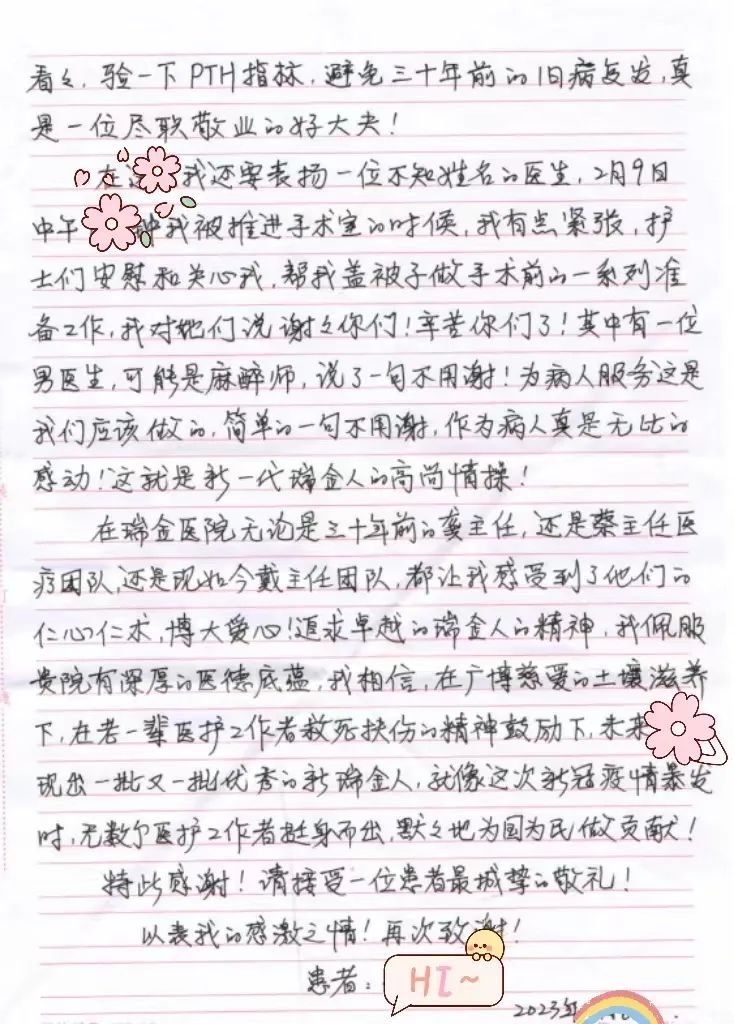 看々，验一下PTH指标，避免三十年前的旧病复发，真
是一位尽职敬业的好大夫！
在 我还要表扬一位不知姓名的医生，2月9日
中午 钟我被推进手术室的时候，我有点紧张，护
士们安慰和关心我，帮我盖被子做手术前的一系列准
备工作，我对她们说谢々你们！辛苦你们了！其中有一位
男医生，可能是麻醉师，说了一句不用谢！为病人服务这是
我们应该做的，简单的一句不用谢，作为病人真是无比的
感动！这就是新一代瑞金人的高尚情操！
在瑞金医院无论是三十年前的龚主任，还是蔡主任医
疗团队，还是现如今戴主任团队，都让我感受到了他们的
仁心仁术，博大爱心！追求卓越的瑞金人的精神，我佩服
贵院有深厚的医德底蕴，我相信，在广博慈爱的土壤滋养
下，在老一辈医护工作者救死扶伤的精神鼓励下，未来
现出一批又一批优秀的新瑞金人，就像这次新冠疫情暴发
时，无数尔医护工作者挺身而出，默々地为国为民做贡献！
特此感谢！请接受一位患者最诚挚的敬礼！
以表我的感激之情！再次致谢！
患者：
HI~
2023年